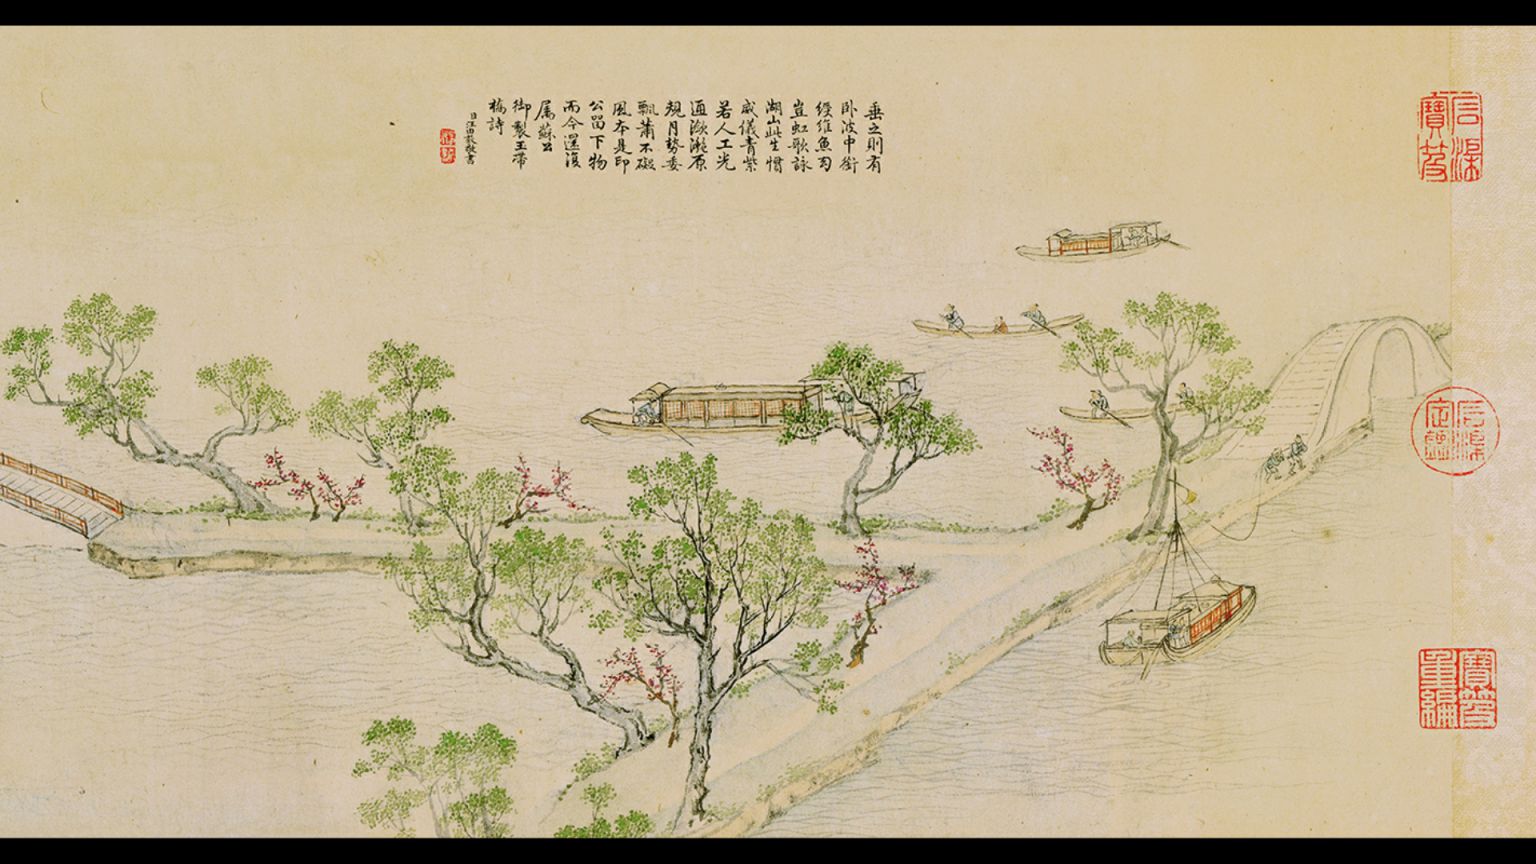 垂之則有
卧波中銜
綬維魚勾
豈虹歌詠
湖山此生慣
威儀青紫
若人工光
通潋灔原
規月勢委
飄蕭不礙
風本是印
公留下物
而今還復
屬蘇公
御製玉帶
橋詩
臣汪由敦敬書
石渠
寶笈
石渠
定鑑
寶笈
重編